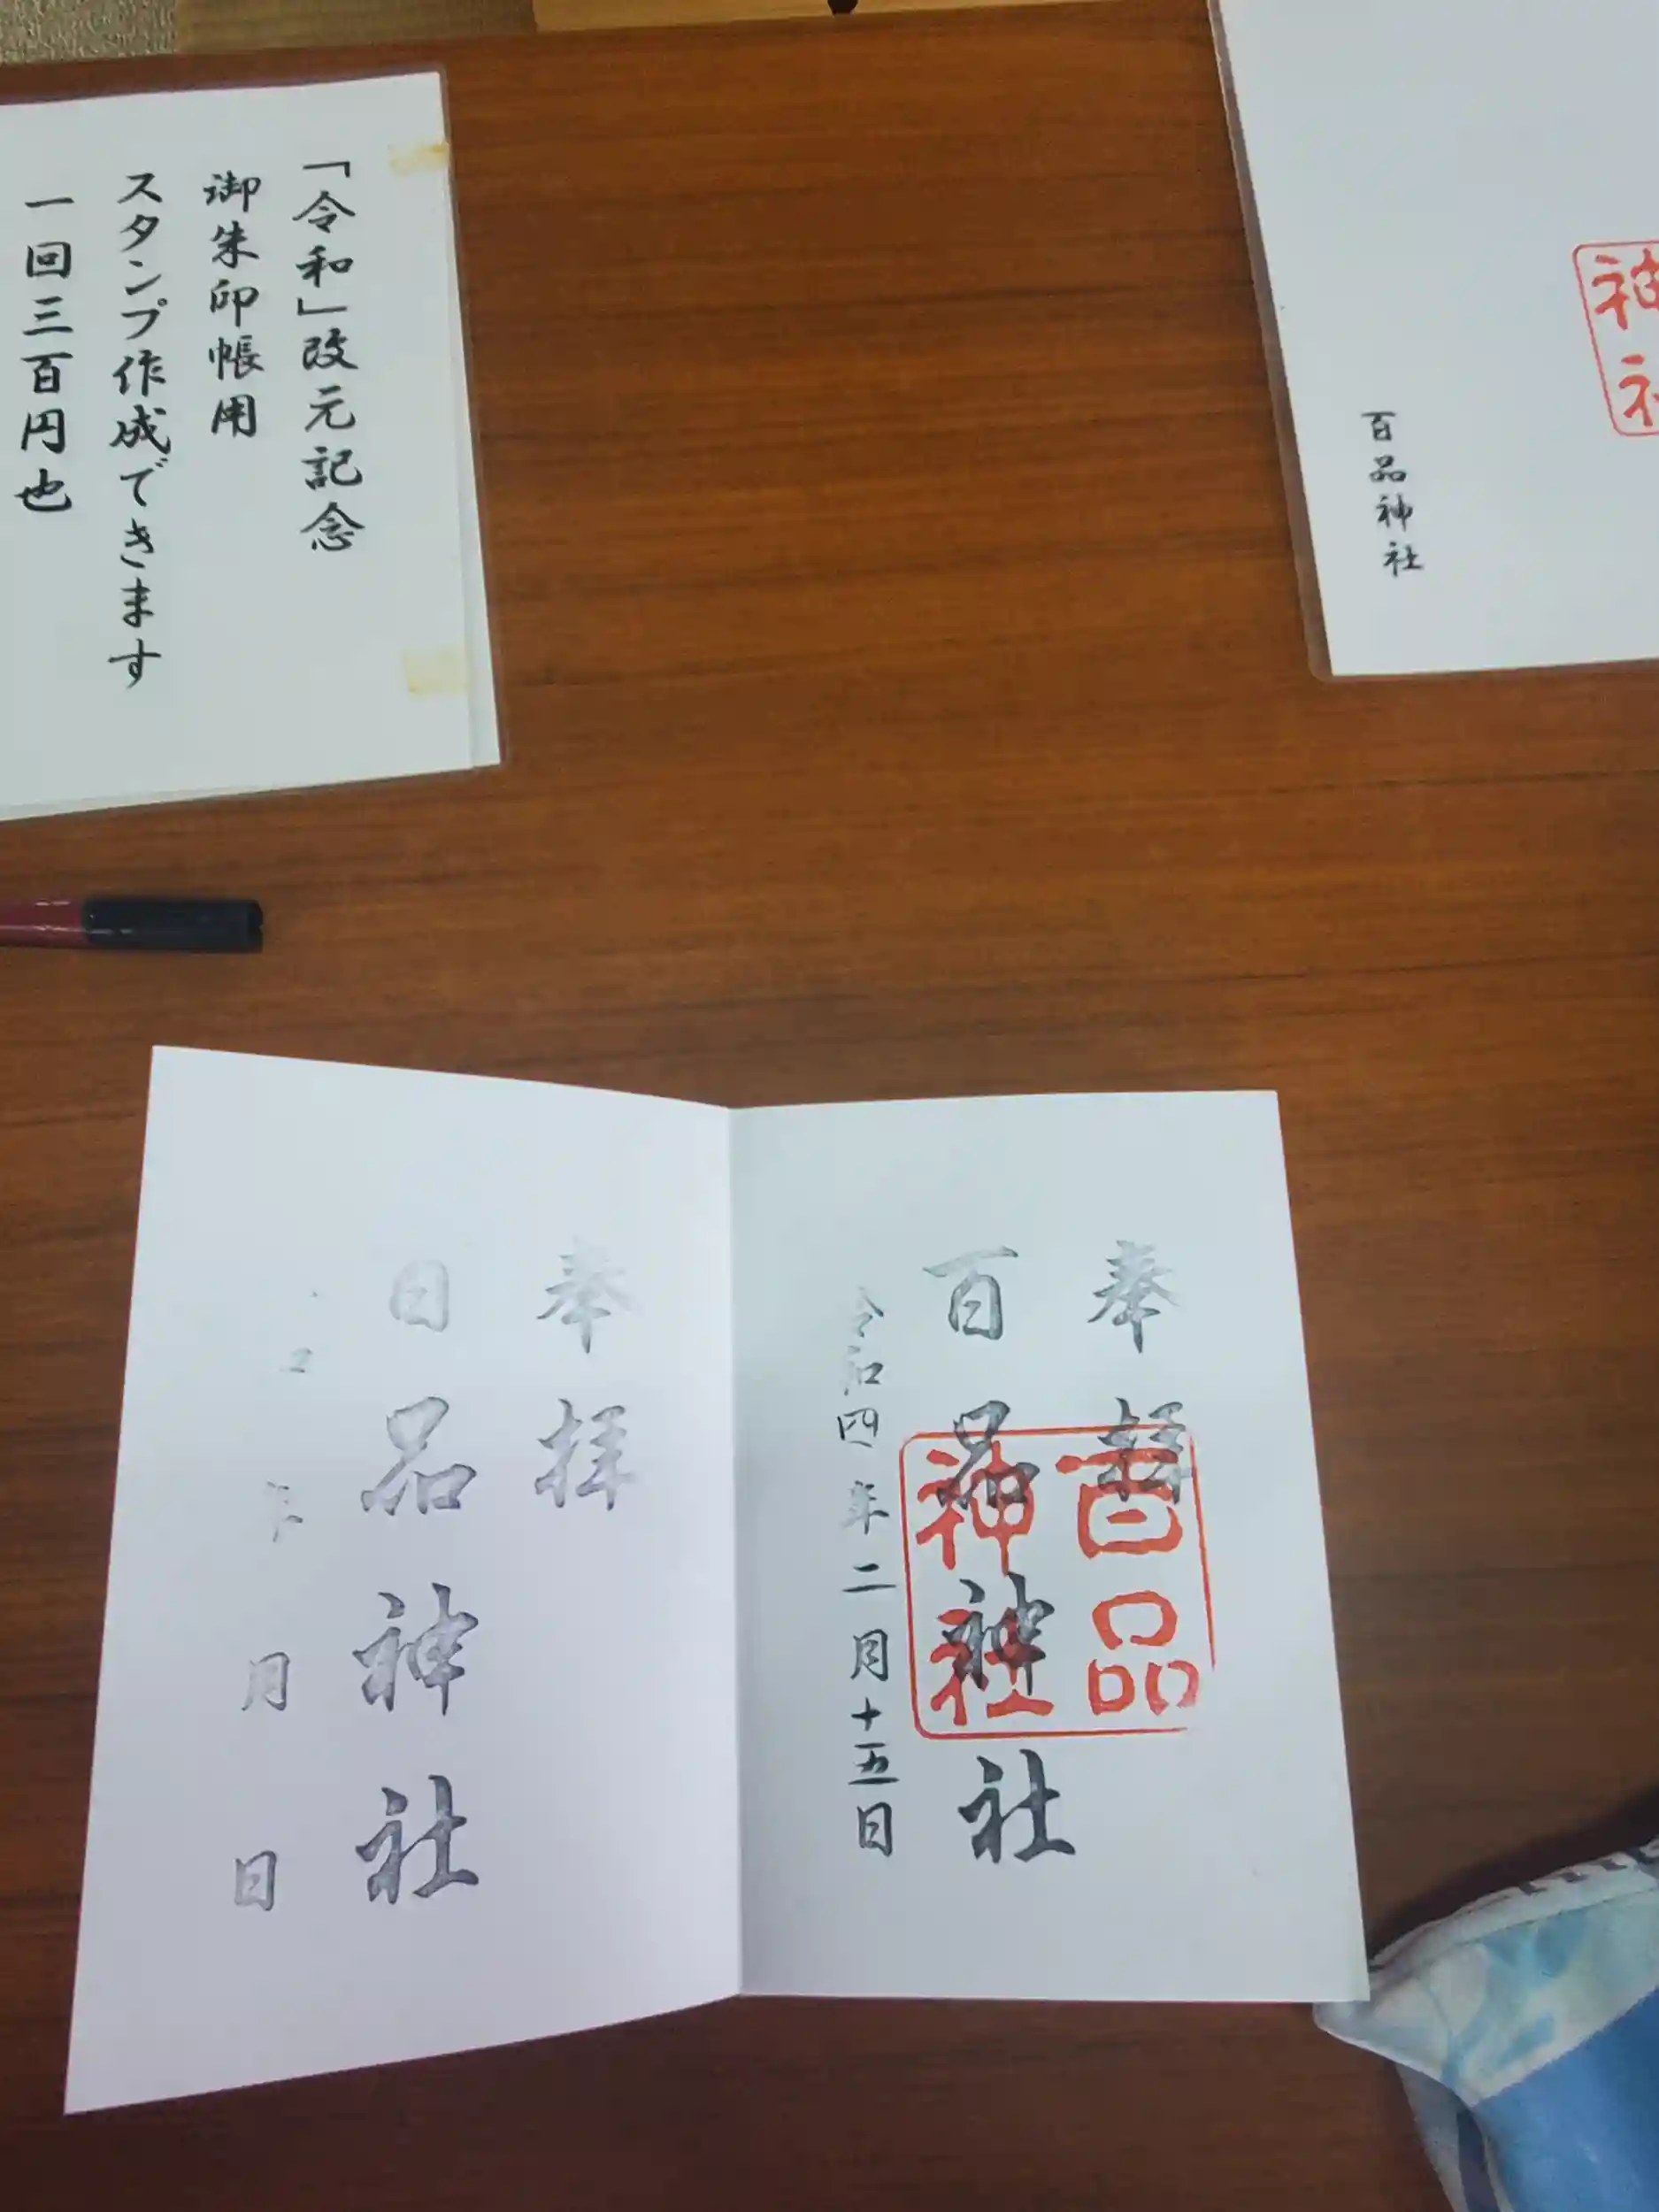 「令和」改元記念
御朱印帳用
スタンプ作成できます
一回三百円也
神社
百品神社
奉拝
百品神社
令和四年二月十五日
百品
神社
奉拝
品神社
月 日